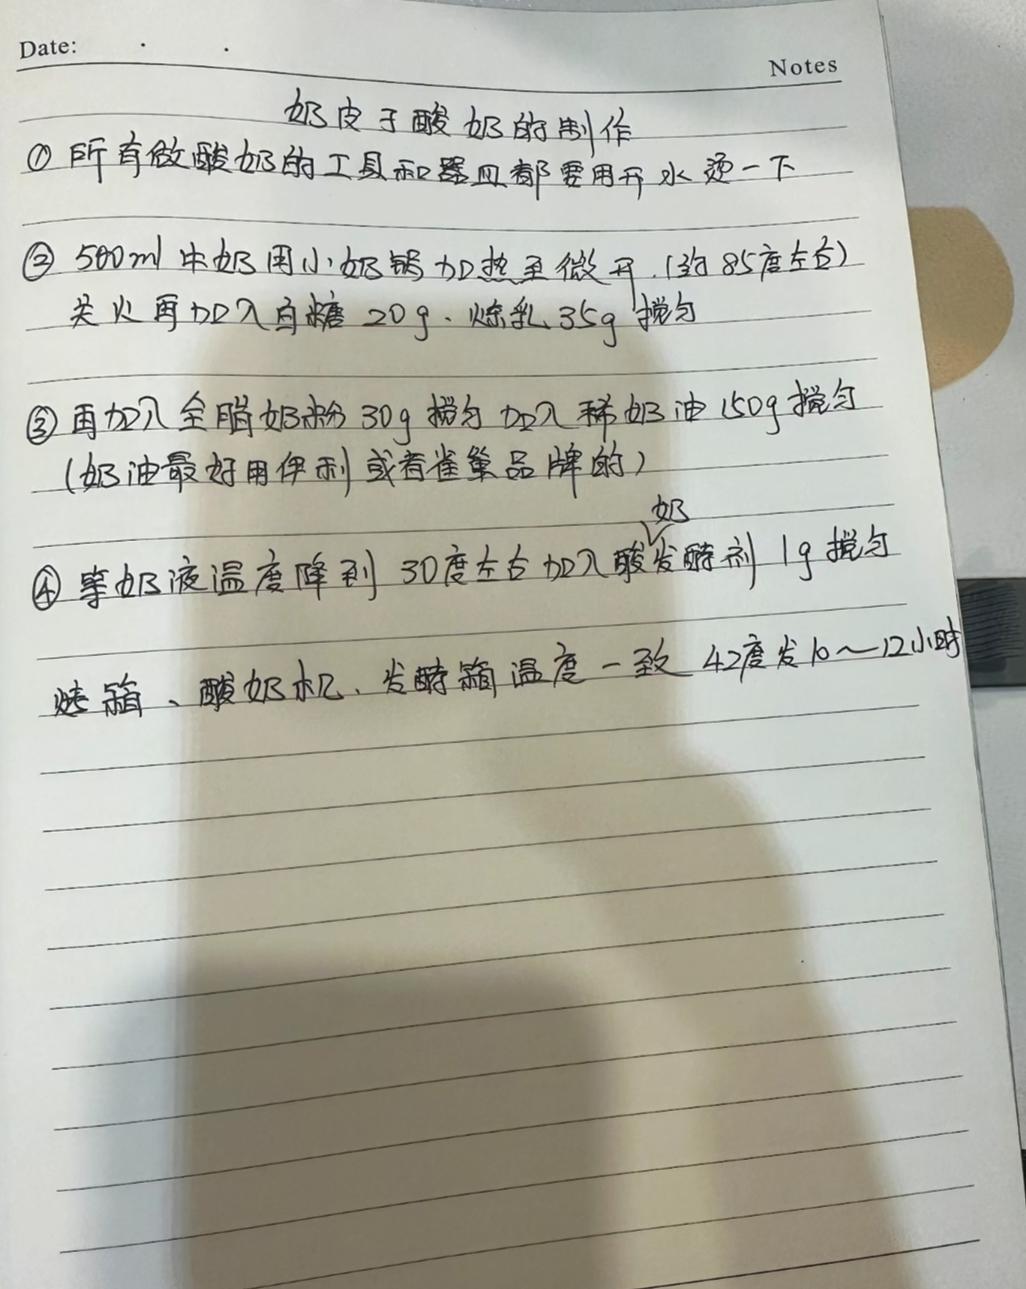 Date: . .
Notes
奶皮子酸奶的制作
① 所有做酸奶的工具和器皿都要用开水烫一下
② 500ml 牛奶用小奶锅加热至微开.(约85度左右)
关火再加入白糖20g、炼乳35g搅匀
③ 再加入全脂奶粉30g搅匀加入稀奶油150g搅匀
(奶油最好用伊利或者雀巢品牌的)
④ 等奶液温度降到30度左右加入酸奶发酵剂1g搅匀
烤箱、酸奶机、发酵箱温度一致42度发10~12小时